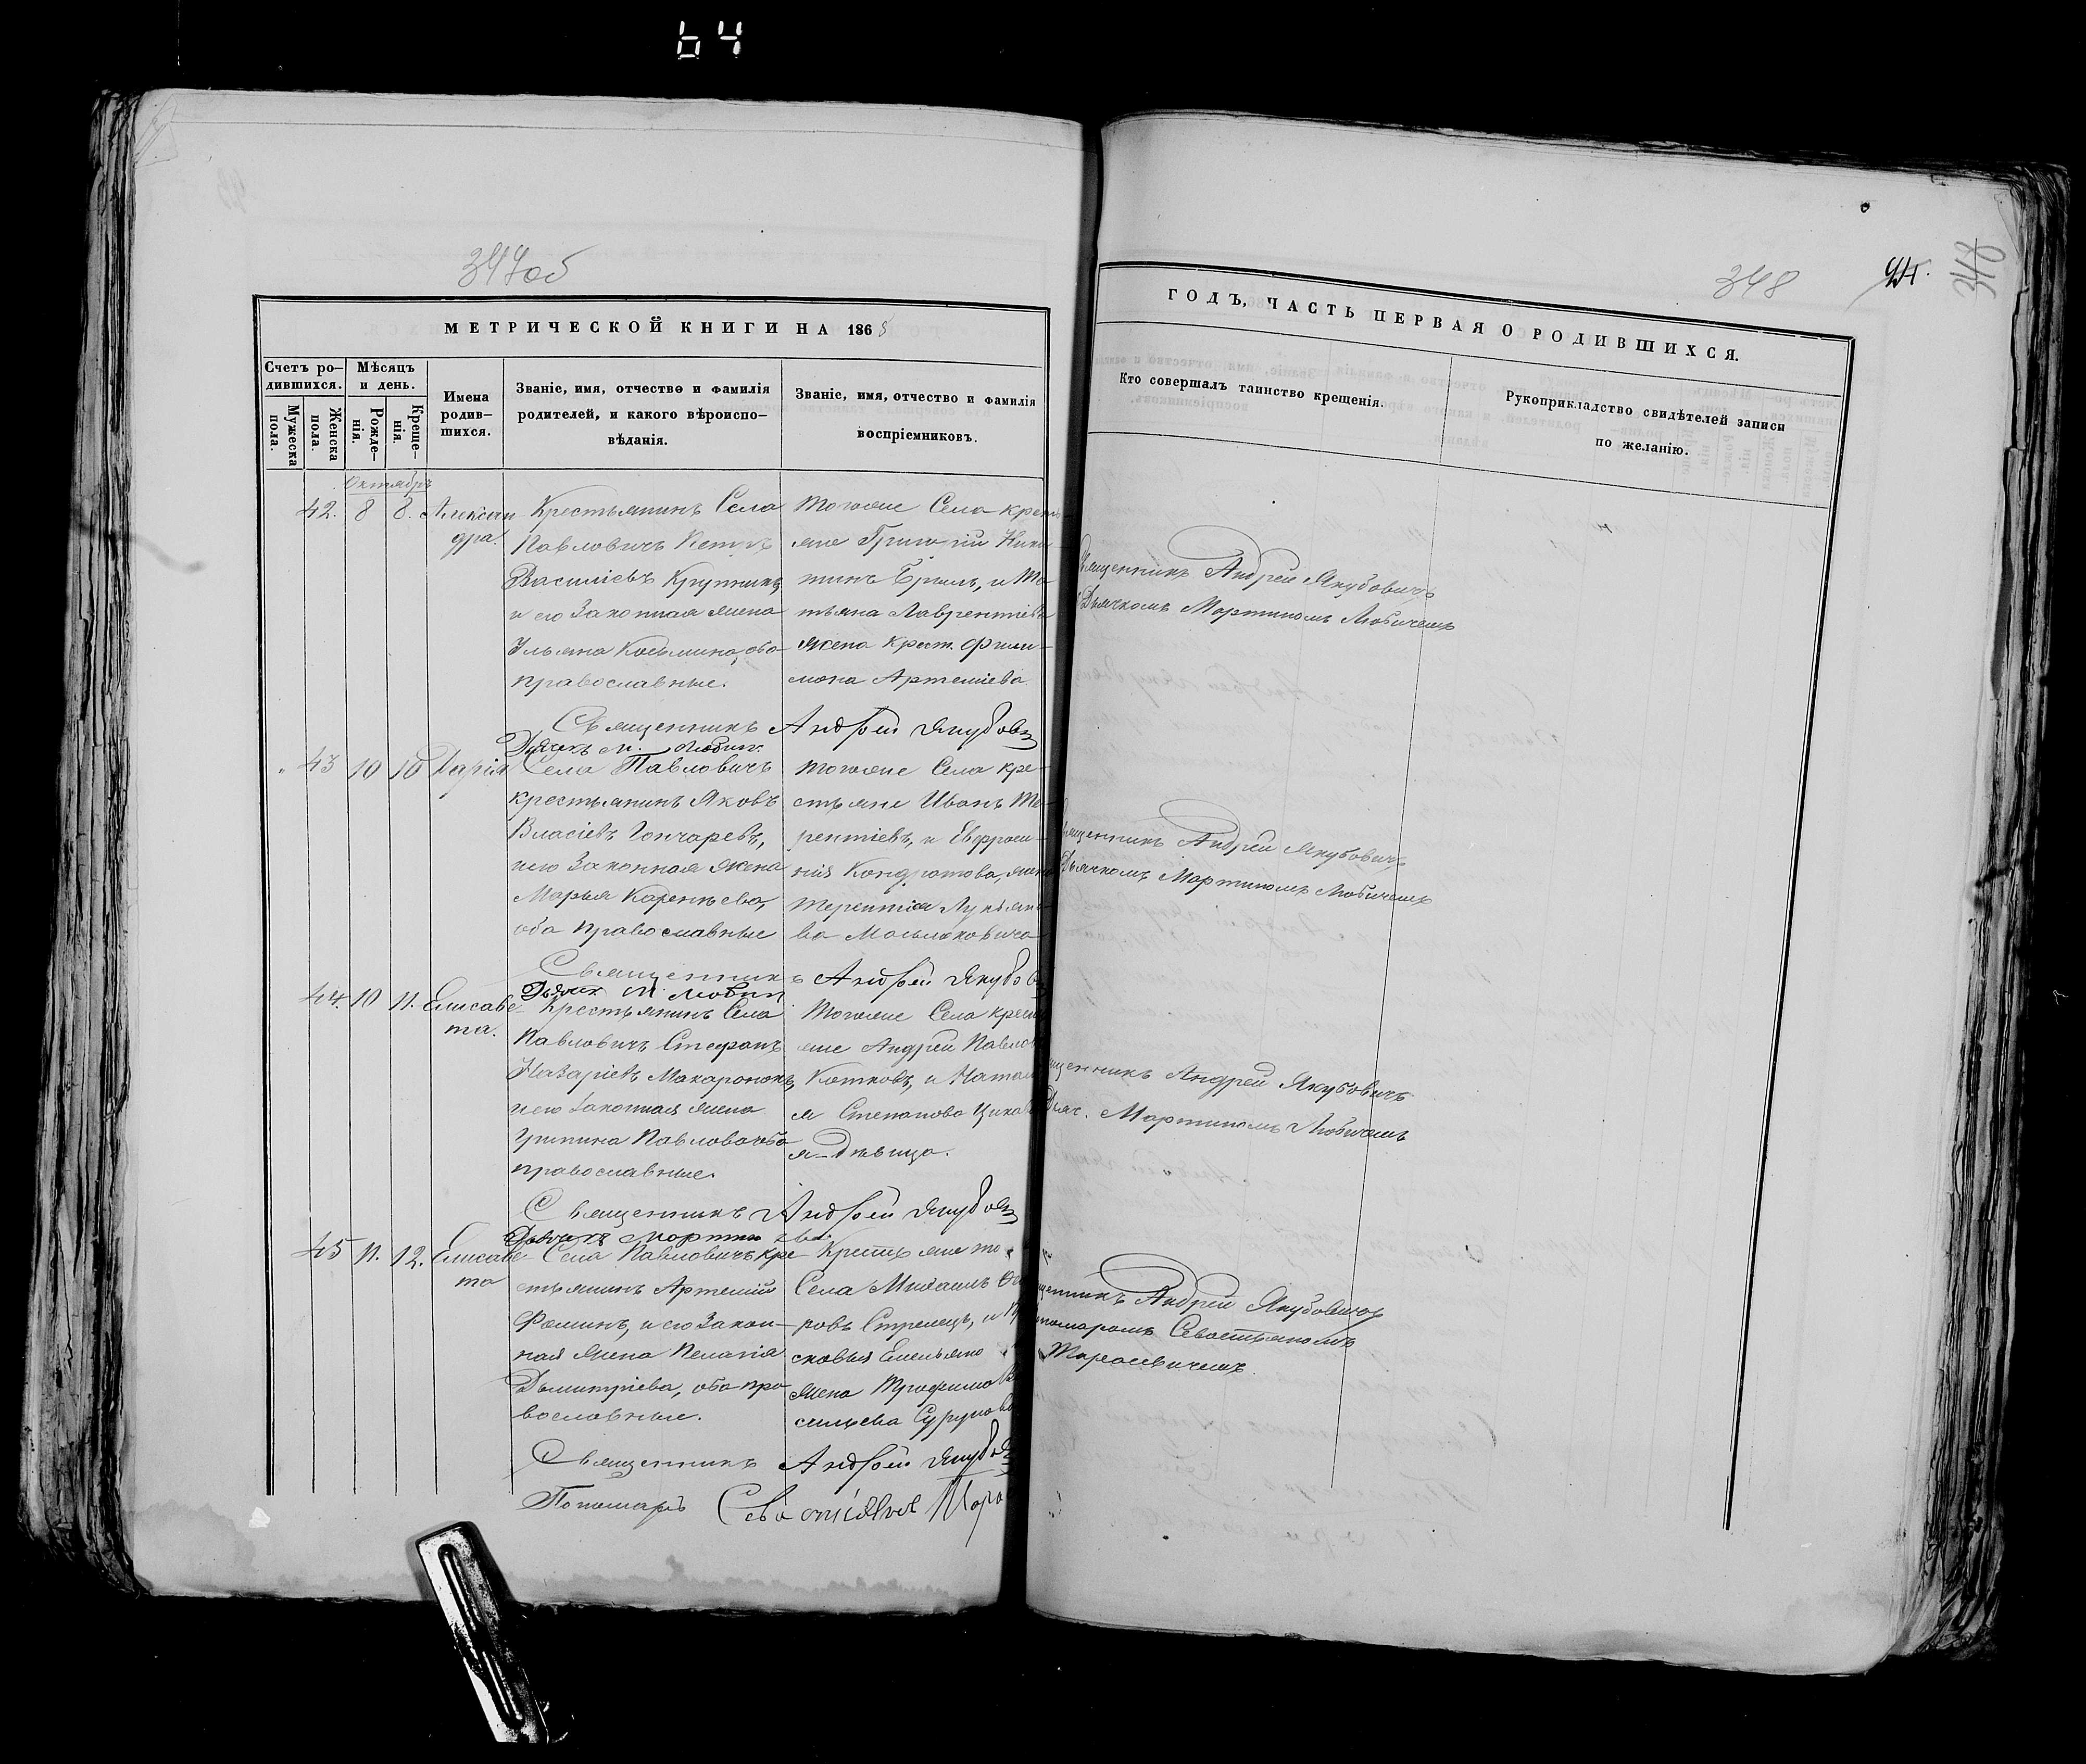 64
347об
МЕТРИЧЕСКОЙ КНИГИ НА 1865
Счетъ ро-
дившихся.
Мѣсяцъ
и день.
Имена
родив-
шихся.
Званіе, имя, отчество и фамилія
родителей, и какого вѣроиспо-
вѣданія.
Званіе, имя, отчество и фамилія
воспріемниковъ.
Мужеска
пола.
Женска
пола.
Рожде-
нія.
Креще-
нія.
Октябрь
42. 8 8. Алексан
дра.
Крестьянинъ Села
Павловичъ Петръ
Василіевъ Крупникъ,
и его Законная жена
Ульяна Косьмина, оба
православные.
Тогоже Села кресть
яне Григорій Ники
тинъ Бриль, и Та
тьяна Лаврентіева
жена Крест. Фили-
мона Артеміева
Священникъ Андрей Якубови
Дьячкъ М. Любич.
43 10 10 Дарія
Села Павловичъ
крестьянинъ Яковъ
Власіевъ Гончаревъ,
и его Законная жена
Марья Кор
оба православные
Тогоже Села кре-
стьяне Иванъ Те-
рентіевъ, и Евфроси-
нія Кондратова, жена
Терентія Лукьяно
ва Масьляковича
Священникъ Андрей Якубови
Дьячк М. Любич
44. 10 11. Елисаве-
та.
Крестьянинъ Села
Павловичъ Стефанъ
Назаріевъ Макаронокъ,
и его Законная жена
Гришина Павлова оба
православные.
Тогоже Села кресть
яне Андрей Павлов
Котковъ, и Натал
я Степанова Цика
я-Дѣвица.
Священникъ Андрей Якубови
Дьячкъ Мартин
45 11. 12. Елисаве
та
Села Павловичъ кре
стьянинъ Артемій
Фоминъ, и его Закон-
ная жена Пелагія
Дымитріева, оба пра
вославные.
Крестьяне то
Села Михаилъ
ровъ Стрелецъ, и Пр
сковья Емельяно
жена Трофима Ва
сильева Сурунова
Священникъ Андрей Якубов
Пономарь Севастіянъ Тара
348
348
ГОДЪ, ЧАСТЬ ПЕРВАЯ О РОДИВШИХСЯ.
Кто совершалъ таинство крещенія.
Рукоприкладство свидѣтелей записи
по желанію.
ященникъ Андрей Якубовичъ
Дьячкомъ Мартиномъ Любичемъ
ященникъ Андрей Якубовичъ
Дьячкомъ Мартиномъ Любичемъ
щенникъ Андрей Якубовичъ
Дьяч. Мартиномъ Любичемъ
щенникъ Андрей Якубовичъ
номаромъ Севастьяномъ
Тарасевичемъ.